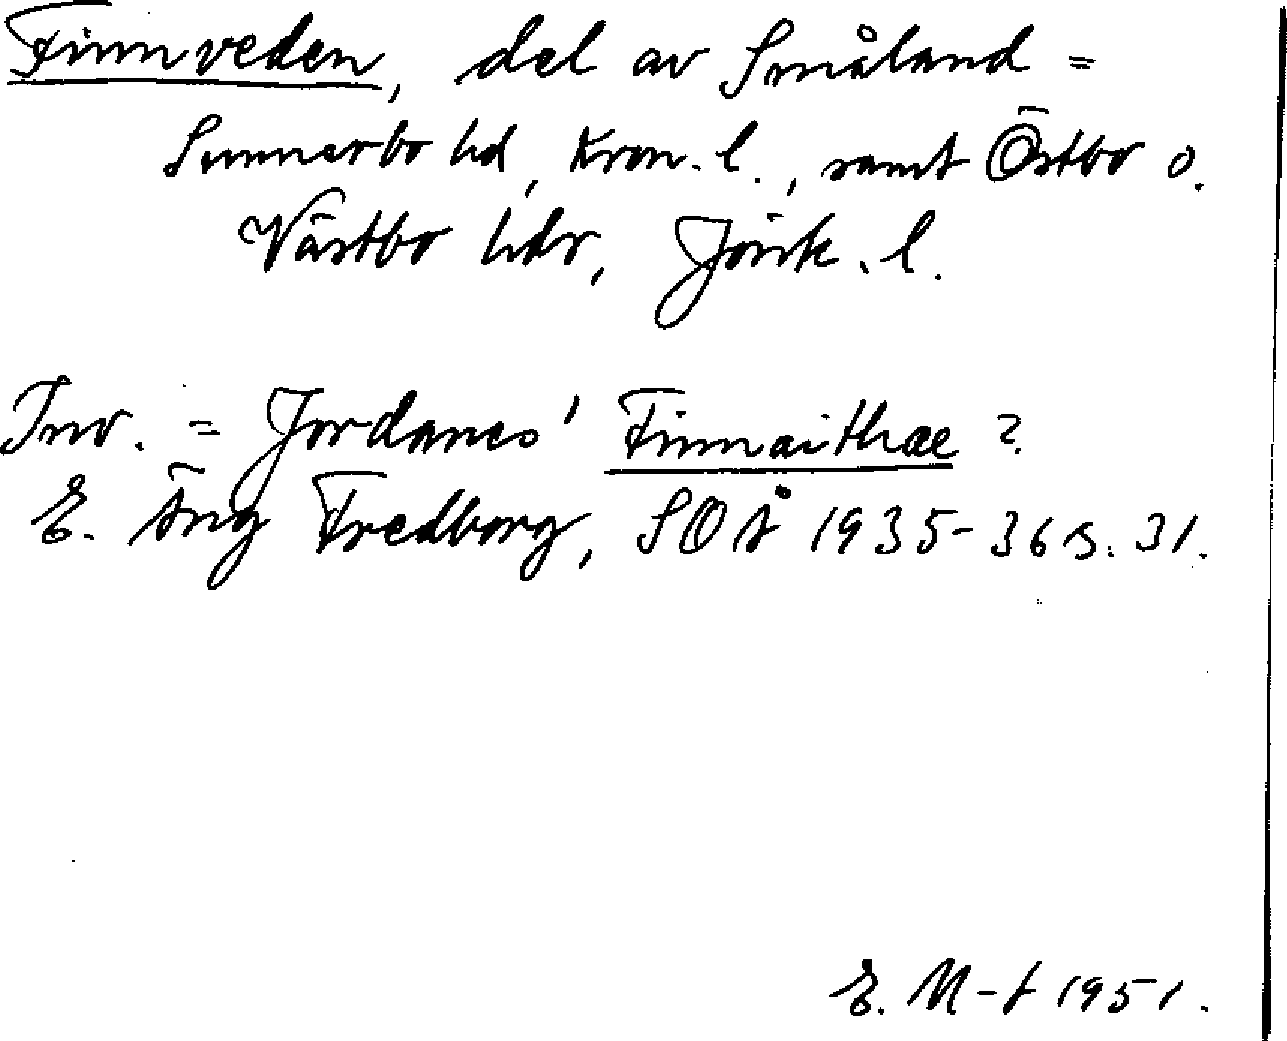 Finnveden, del av Småland =
Sunnerbo hd, Kron. l., samt Östbo o.
Västbo hdr, Jönk. l.
Inv. = Jordanes' Finnaithae?
E. Äng Fredborg, SOÅ 1935-36 s. 31.
E. M-t 1951.